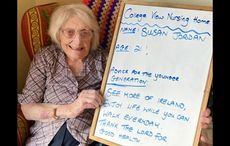 College View Nursing Home
NAME: SUSAN JORDAN
AGE: 21!
ADVICE FOR THE YOUNGER
GENERATION:
SEE MORE OF IRELAND,
ENJOY LIFE WHILE YOU CAN
WALK EVERYDAY.
THANK THE LORD FOR
GOOD HEALTH